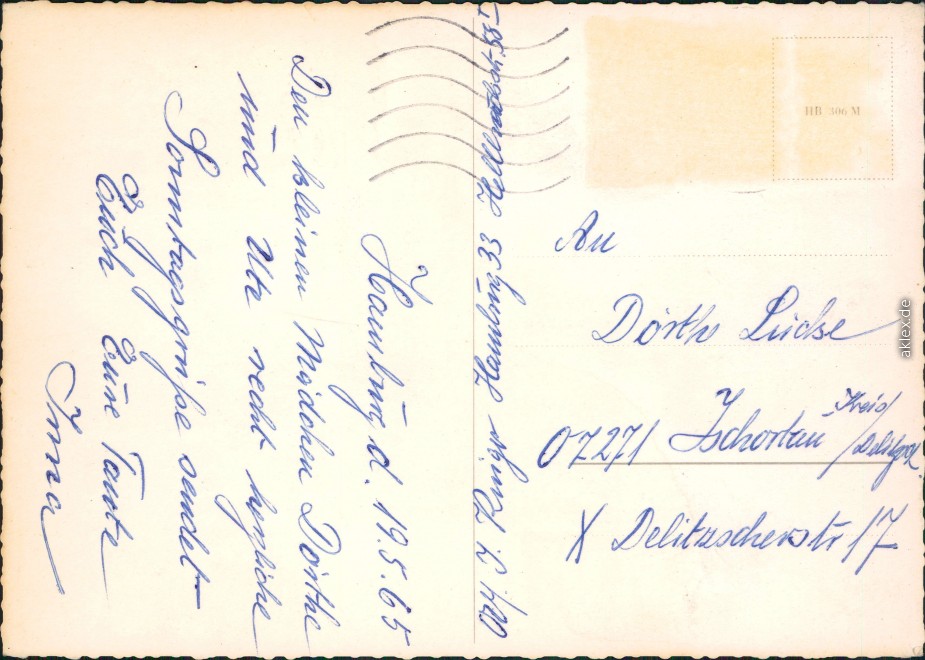 Hamburg d. 19.5.65
Den kleinen Mädchen Dörthe
und Ute recht herzliche
Sonntagsgrüße sendet
Euch Eure Tante
Irma
Hamburg 33
HB 306 M
An
Dörthe Lüdse
07271 Zschortau Kreis
Delitzsch
X Delitzscherstr 17
aklex.de